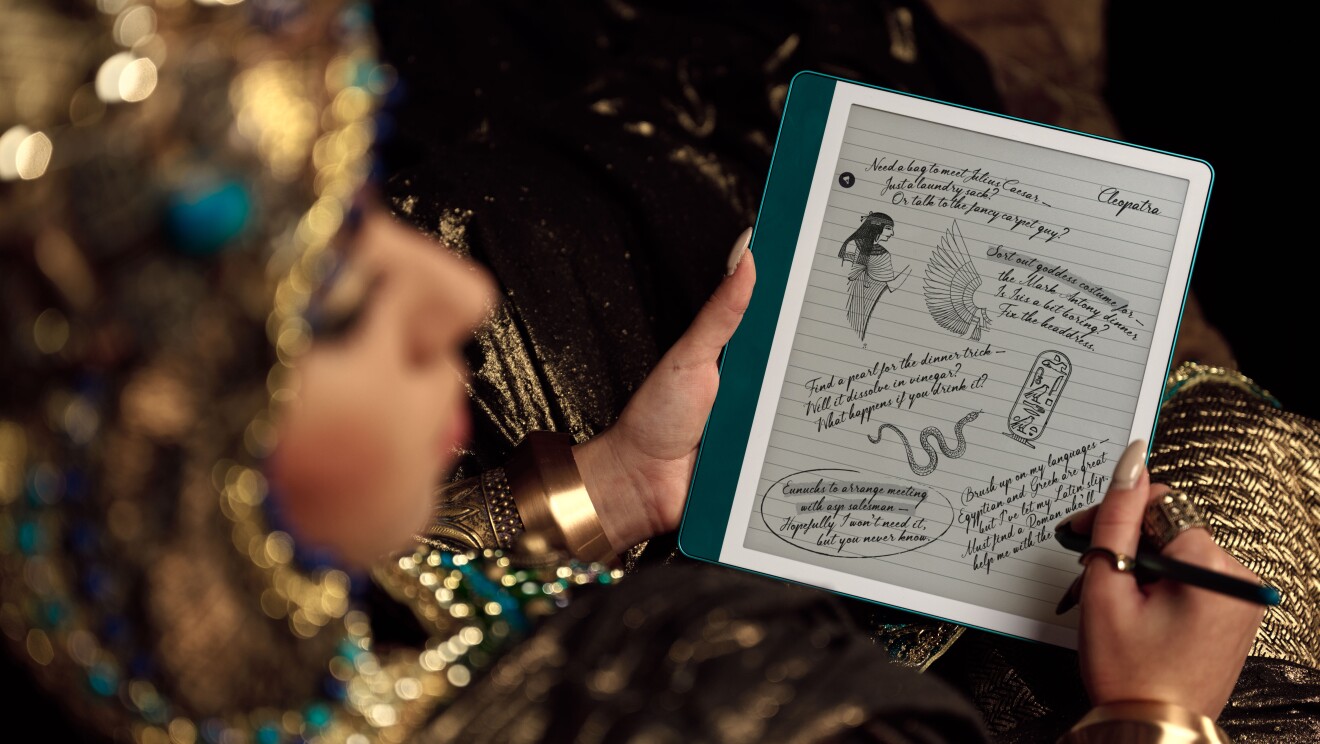 Need a bag to meet Julius Caesar –
Just a laundry sack?
Or talk to the fancy carpet guy?
Cleopatra
Sort out goddess costume for –
the Mark Antony dinner
Is Isis a bit boring?
Fix the headdress.
Find a pearl for the dinner trick –
Will it dissolve in vinegar?
What happens if you drink it?
Eunuchs to arrange meeting
with asp salesman –
Hopefully I won't need it,
but you never know.
Brush up on my languages –
Egyptian and Greek are great
but I've let my Latin slip.
Must find a Roman who'll
help me with the